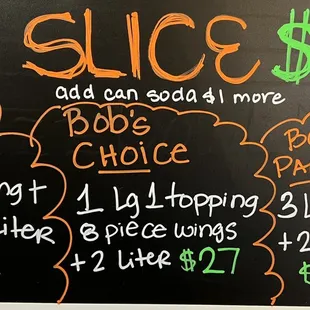 SLICE $
add can soda $1 more
Bob's
CHOICE
1 Lg 1 topping
8 piece wings
+ 2 Liter $27
ng +
iter
Bo
PA
3 L
+ 2